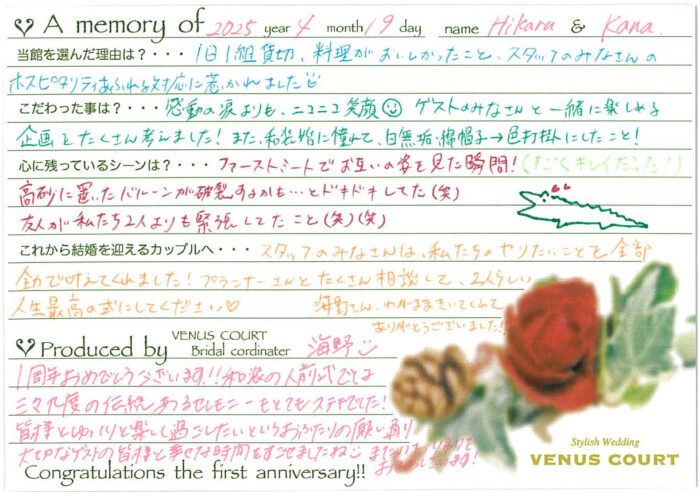 A memory of 2025 year 4 month 19 day name Hikaru & Kana.
当館を選んだ理由は?・・・1日1組貸切、料理がおいしかったこと、スタッフのみなさんの
ホスピタリティあふれる対応に惹かれました
こだわった事は?・・・感動の涙よりも、ニコニコ笑顔 ゲストのみなさんと一緒に楽しめる
企画をたくさん考えました!また、和装婚に憧れて、白無垢・綿帽子→色打掛にしたこと!
心に残っているシーンは?・・・ファーストミートでお互いの姿を見た瞬間!(すごくキレイだった!)
高砂に置いたバルーンが破裂するかも…とドキドキしてた(笑)
友人が私たち2人よりも緊張してたこと(笑)(笑)
これから結婚を迎えるカップルへ・・・スタッフのみなさんは、私たちのやりたいことを全部
全力で叶えてくれました!プランナーさんとたくさん相談して、2人らしい
人生最高の式にしてください♡
海野さん、わがままきいてくれて
ありがとうございました!
Produced by VENUS COURT Bridal cordinater 海野
1周年おめでとうございます!!和装の人前式では
三々九度の伝統あるセレモニーもとてもステキでした!
皆様とゆっくりと楽しく過ごしたいというおふたりの願い通り
大切なゲストの皆様と幸せな時間をすごせましたね
Congratulations the first anniversary!!
Stylish Wedding
VENUS COURT